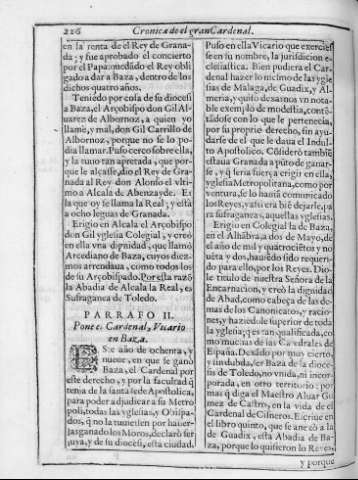 226
Cronica de el gran Cardenal.
en la renta de el Rey de Grana-
da; y fue aprobado el concierto
por el Papa: mediādo el Rey obli
gado a dar a Baza, dentro de los
dichos quatro años.
Teniēdo por cosa de su diocesi
a Baza, el Arçobispo don Gil Al
uarez de Albornoz, a quien yo
llame, y mal, don Gil Carrillo de
Albornoz, porque no se lo po-
dia llamar. Puso cerco sobre ella,
y la tuuo tan apretada, que por-
que le alçasse, dio el Rey de Gra-
nada al Rey don Alonso el vlti-
mo a Alcala de Abenzayde. Es
la que oy se llama la Real; y está
a ocho leguas de Granada.
Erigio en Alcala el Arçobispo
don Gil yglesia Colegial, y creó
en ella vna dignidad, que llamó
Arcediano de Baza, cuyos diez-
mos arrendaua, como todos los
de su Arçobispado. Por esta razō
la Abadia de Alcala la Real, es
Sufraganea de Toledo.
PARRAFO II.
Pone el Cardenal, Vicario
en Baza.
Ste año de ochenta, y
nueue, en que se ganò
Baza, el Cardenal por
este derecho, y por la facultad q̄
tenia de la santa sede Apostolica,
para poder adjudicar a su Metro
poli, todas las yglesias, y Obispa-
dos, q̄ no la tuuiessen por hauer-
las ganado los Moros, declarò ser
suya, y de su diocesi, esta ciudad.
Puso en ella Vicario que exercies
se en su nombre, la jurisdicion e-
clesiastica. Bien pudiera el Car-
denal hazer lo mismo de las ygle
sias de Malaga, de Guadix, y Al-
meria, y quitò de sainos vn nota-
ble exemplo de modestia, contē-
tādose con lo que le pertenecia,
por su proprio derecho, sin ayu-
darse de el que le daua el Indul-
to Apostolico. Cōsiderò tambiē
estaua Granada a pūto de ganar-
se, y q̄ seria fuerça erigir en ella,
yglesia Metropolitana, como por
ventura, se lo hauiā comunicado
los Reyes, y assi era biē dejarle, pa
ra sufraganeas, aquellas yglesias.
Erigio en Colegial la de Baza,
en el Alhābra a dos de Mayo, de
el año de mil y quatrocietos y no
uēta y dos, hauiēdo sido requeri-
do para ello, por los Reyes. Dio-
le titulo de nuestra Señora de la
Encarnacion, y creò la dignidad
de Abad, como cabeça de las de-
mas de los Canonicatos, y racio-
nes, y haziēdole superior de toda
la yglesia; q̄ es tan qualificada, co
mo muchas de las Catedrales de
España. Dexādo por muy cierto,
y indubitable, ser Baza de la dioce-
sis de Toledo, no vnida, ni incor-
porada, en otro territorio: por
mas q̄ diga el Maestro Aluar Go
mez de Castro, en la vida de el
Cardenal de Cisneros. Escriue en
el libro quinto, que se anexò a la
de Guadix, esta Abadia de Ba-
za, porque lo quisieron lo Reyes,
y porque